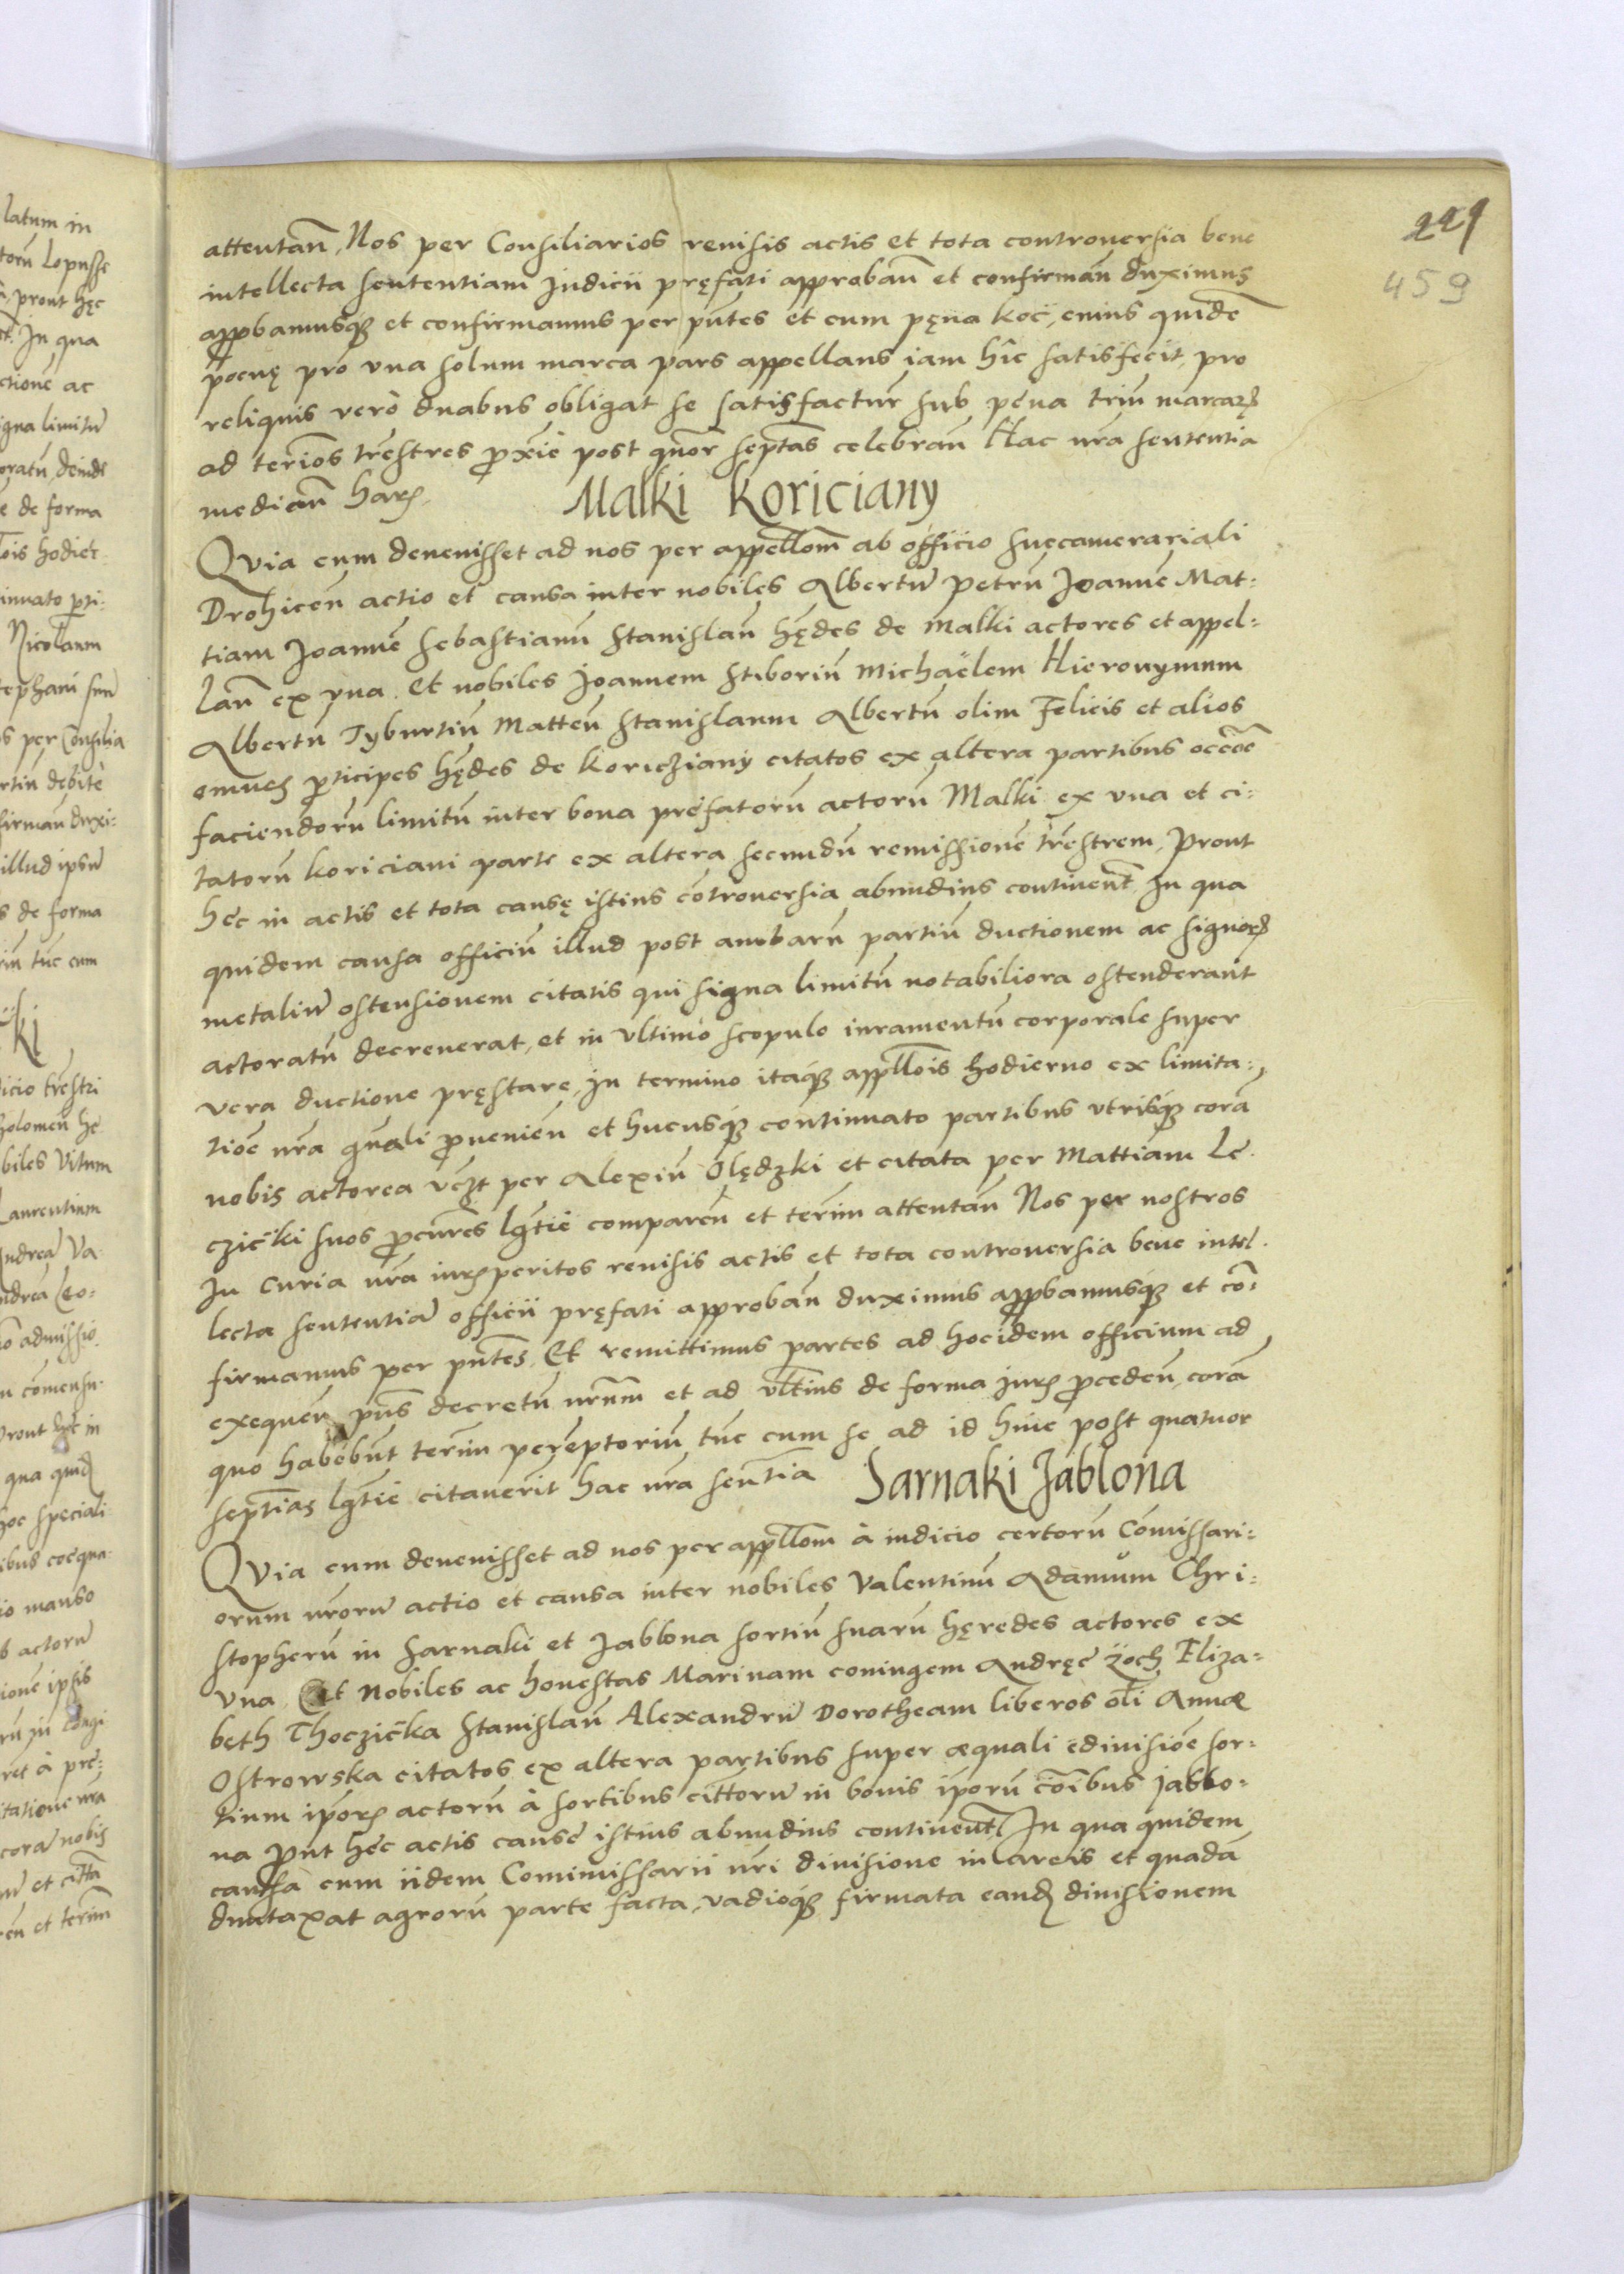 221
459
attentan̄, Nos per Consiliarios reuisis actis et tota controuersia bene
intellecta sententiam Iudicii pręfati approban̄ et confirman̄ duximus
appbamusq3 et confirmamus per pn̄tes et cum pęna koc̈, cuius quidē
poenę pro vna solum marca pars appellans iam hîc satisfecit, pro
reliquis verò duabus obligat se satisfactur̄ sub pena triū marcarꝝ
ad terīos tr̄estres prox̄ie post quor̄ septas̄ celebran̄ Hac nr̄a sententia
median̄ harꝝ.
Malki Koriciany
Qvia cum deuenisset ad nos per appellom̄ ab officio succamerariali
Drohicen̄ actio et causa inter nobiles Albertum̄ Petrū Joannē Mat-
tiam Joannē Sebastianū Stanislaū hęd̄es de Malki actores et appel-
lan̄ ex vna. Et nobiles Joannem Stiborium̄ Michaëlem Hieronymum
Albertū Tyburtiū Matteū Stanislaum Albertū olim Felicis et alios
omnes pticipes hęd̄es de Koricziany citatos ex altera partibus occōe
faciendorū limitū inter bona prefatorū actorū Malki ex vna et ci-
tatorū Koriciani parte ex altera secundū remissionē tr̄estrem, Prout
hęc in actis et tota causę istius cōtrouersia abundius continent̄. In qua
quidem causa officiū illud post ambarū partiū ductionem ac signorꝝ
metaliū ostensionem citatis qui signa limitū notabiliora ostenderant
actoratū decreuerat, et in vltimo scopulo iuramentū corporale super
vera ductione pręstare, In termino itaq3 appellois̄ hodierno ex limita-
tiōe nr̄a gnāli prouenien̄ et hucusq3 continuato partibus vtrisq3 corā
nobis actorea vcz̄t per Alexiū Olędzki et citata per Mattiam Le-
czic̈ki suos procur̄es lgt̄ie comparen̄ et term̄ attentan̄ Nos per nostros
In Curia nr̄a iurꝭperitos reuisis actis et tota controuersia bene intel-
lecta sententiā officii pręfati approban̄ duximus appbamusq3 et cō-
firmamus per pn̄tes. Et remittimus partes ad hocidem officium ad
exequen̄ pn̄s decretū nrm̄ et ad vltīus de forma Iurꝭ proceden̄, corā
quo habebūt term̄ peremptoriū tūc cum se ad id hinc post quatuor
septim̄as lgt̄ie citauerit hac nr̄a sent̄ia
Sarnaki Jablona
Qvia cum deuenisset ad nos per appllom̄ à iudicio certorū Cōmissari-
orum nr̄orum actio et causa inter nobiles Valentinū Adamum Chri-
stopherū in Sarnaki et Jablona sortiū suarū hęredes actores ex
vna. Et Nobiles ac honestas Marinam coniugem Andręe Zoch Eliza-
beth Thoczic̈ka Stanislaū Alexandrū Dorotheam liberos oli̅ Annæ
Ostrowska citatos ex altera partibus super æquali edinisiōe sor-
tium ip̄orꝝ actorū à sortibus citt̄orum in bonis ip̄orū cōibus Jablo-
na pūt hęc actis causę istius abundius continent̄. In qua quidem
causa cum iidem Commissarii nr̄i diuisione in areis et quadā
duntaxat agrorū parte facta, vadioq3 firmata eandꝭ diuisionem